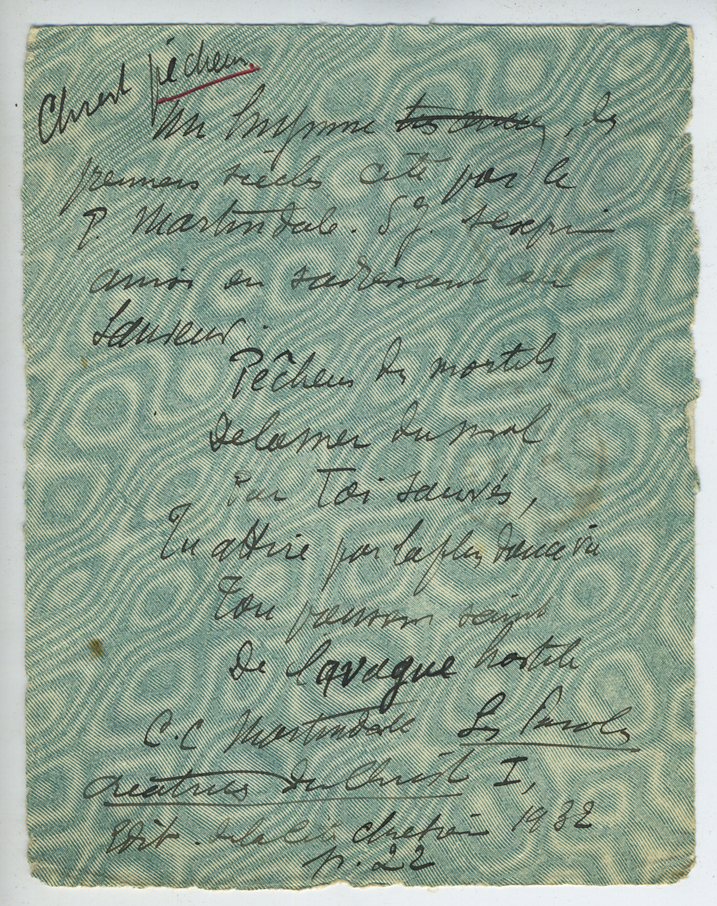 Christ pêcheur.
Un hymne très ancien, des
premiers siècles cité par le
P. Martindale. S.J. s'exprime
ainsi en s'adressant au
Sauveur.
Pêcheur des mortels
De la mer du mal
Par Toi sauvés,
Tu attires par la plus douce vie
Ton poisson saint
De la vague hostile
C.C Martindale Les Paroles
créatrices du Christ I,
Edit. de la Cité chrétienne 1932
p. 22